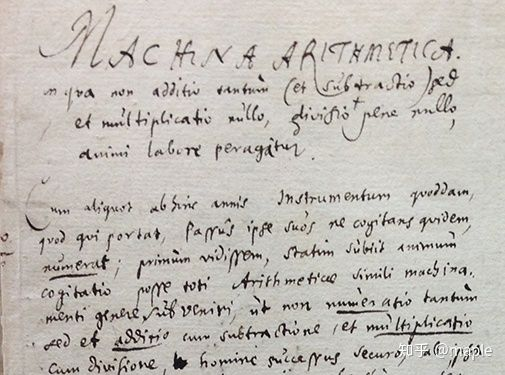 MACHINA ARITHMETICA.
in qva non additio tantùm (et subtractio) sed
et multiplicatio nullo, divisio† pene nullo,
animi labore peragatur.
Cum aliquot abhinc annis Instrumentum quoddam,
quod qui portat, passus ipse suos ne cogitans quidem,
numerat, primùm vidissem, statim subiit animum
cogitatio posse toti Arithmeticæ simili machina-
menti genere subveniri, ut non numeratio tantùm
sed et additio cum subtractione, et multiplicatio
cum divisione, homine successus securo, a
知乎 @maple